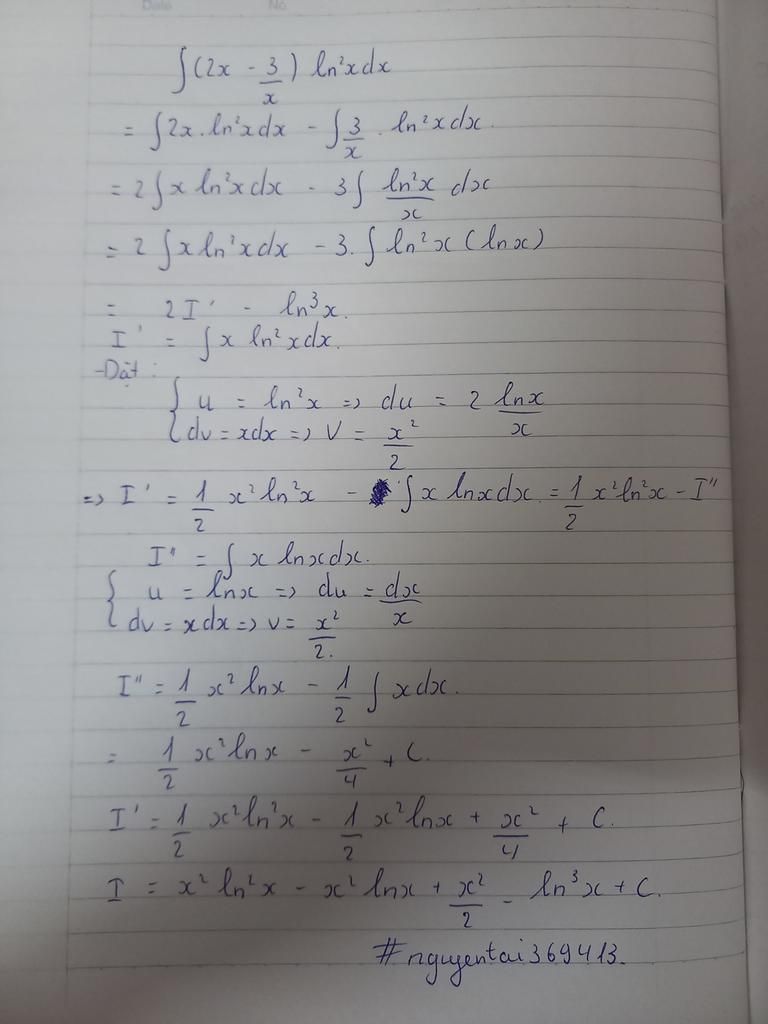 Date No
∫(2x - 3/x) ln²xdx
= ∫2x.ln²xdx - ∫3/x . ln²xdx.
= 2∫x ln²xdx - 3∫ ln²x/x dx
= 2 ∫xln²xdx - 3.∫ln²x(lnx)
= 2I' - ln³x.
I' = ∫x ln²xdx.
-Dặt :
{ u = ln²x => du = 2 lnx/x
dv = xdx => V = x²/2
=> I' = 1/2 x²ln²x - ∫x lnxdx = 1/2 x²ln²x - I"
I" = ∫ x lnxdx.
{ u = lnx => du = dx/x
dv = xdx => v = x²/2.
I" = 1/2 x²lnx - 1/2 ∫xdx.
= 1/2 x²lnx - x²/4 + C.
I' = 1/2 x²ln²x - 1/2 x²lnx + x²/4 + C.
I = x²ln²x - x²lnx + x²/2 - ln³x + C.
#nguyentai369413.